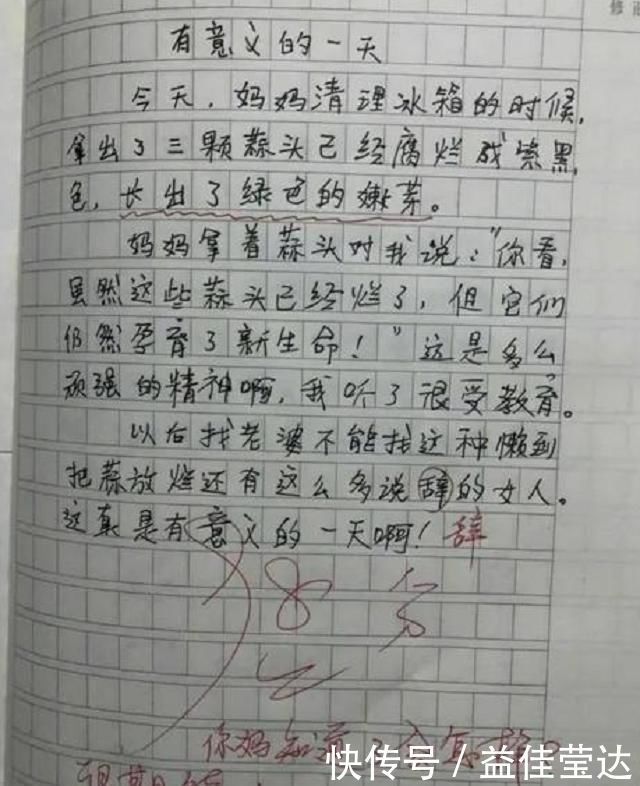 修
有意义的一天
今天，妈妈清理冰箱的时候，
拿出了三颗蒜头已经腐烂成紫黑
色，长出了绿色的嫩芽。
妈妈拿着蒜头对我说："你看，
虽然这些蒜头已经烂了，但它们
仍然孕育了新生命！"这是多么
顽强的精神啊，我听了很受教育。
以后找老婆不能找这种懒到
把蒜放烂还有这么多说辞的女人。
这真是有意义的一天啊！辞
28分
你妈知道了会怎样？
快传号／益佳莹达